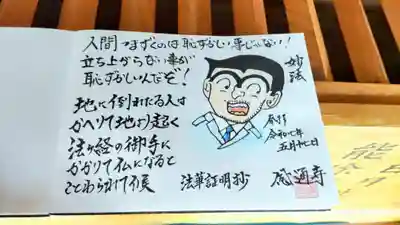 人間つまずくのは恥ずかしい事じゃない!
立ち上がらない事が
恥ずかしいんだぞ!
地に倒れたる人は
かへりて地より起く
法華経の御寺に
かかりて仏になると
ことわられて候
妙法
奉拝
令和七年
五月廿七日
法華証明抄
感通寺